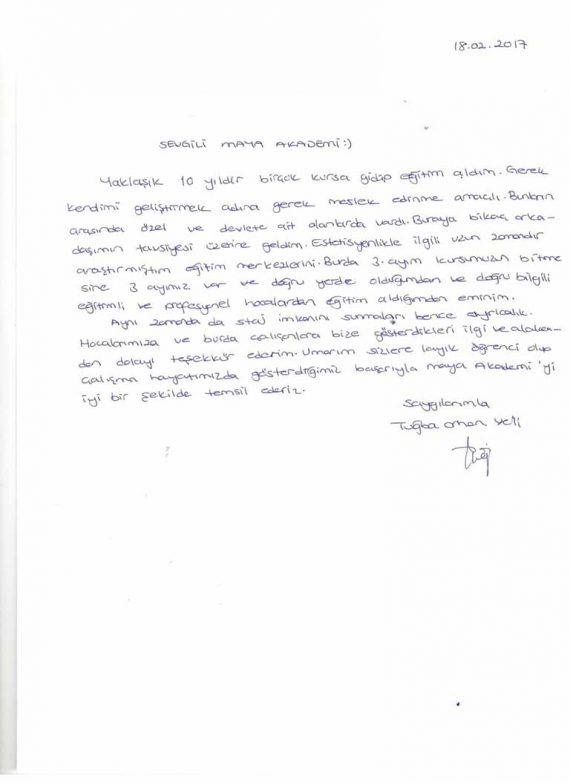 18.02.2017
SEVGİLİ MAYA AKADEMİ:)
Yaklaşık 10 yıldır birçok kursa gidip eğitim aldım. Gerek
kendimi geliştirmek adına gerek meslek edinme amaçlı. Bunların
arasında özel ve devlete ait olanlarda vardı. Buraya bikaç arka-
daşımın tavsiyesi üzerine geldim. Estetisyenlikle ilgili uzun zamandır
araştırmıştım eğitim merkezlerini. Burda 3. ayım kursumuzun bitme
sine 3 ayımız var ve doğru yerde olduğumdan ve doğru bilgili
eğitimli ve profesyonel hocalardan eğitim aldığımdan eminim.
Aynı zamanda da staj imkanını sunmaları bence ayrıcalık.
Hocalarımıza ve burda çalışanlara bize gösterdikleri ilgi ve alaka-
dan dolayı teşekkür ederim. Umarım sizlere layık öğrenci olup
çalışma hayatımızda gösterdiğimiz başarıyla maya Akademi'yi
iyi bir şekilde temsil ederiz.
Saygılarımla
Tuğba orhan